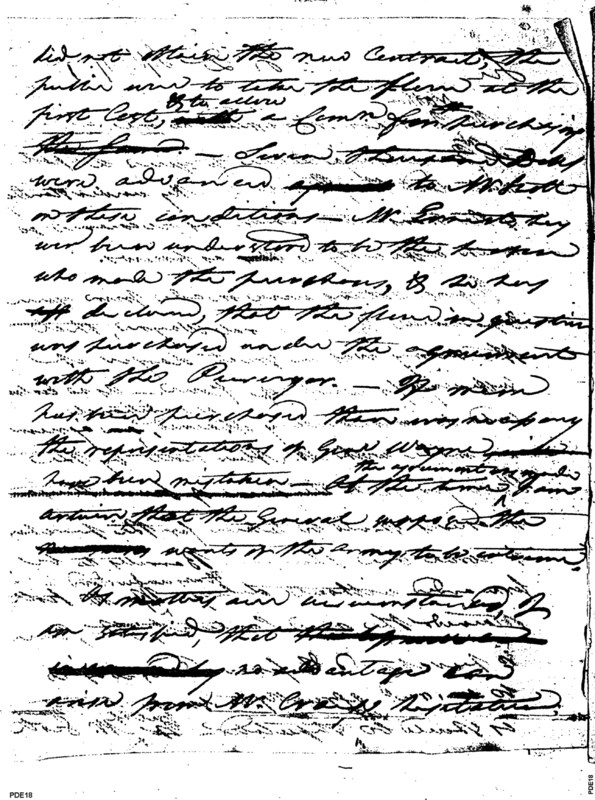 did not obtain the new Contract, the
public were to take the flour at the
first Cost, & to allow a Comn for the purchasing
the flour. — Seven thousand Dolls
were advanced to Mr Scott
on these conditions — Mr
been understood to be the person
who made the purchases, & he has
declared, that the flour in question
was purchased under the agreement
with the Purveyor. — If more
has been purchased than was necessary
the representations of Genl Wayne
have been mistaken — At the time the agreement was made I am
certain that the General supposed the
wants of the Army to be extreme.
As matters are circumstanced, I
am satisfied, that
no advantage can
arise from Mr. Craigs hesitation.
PDE18
PDE18